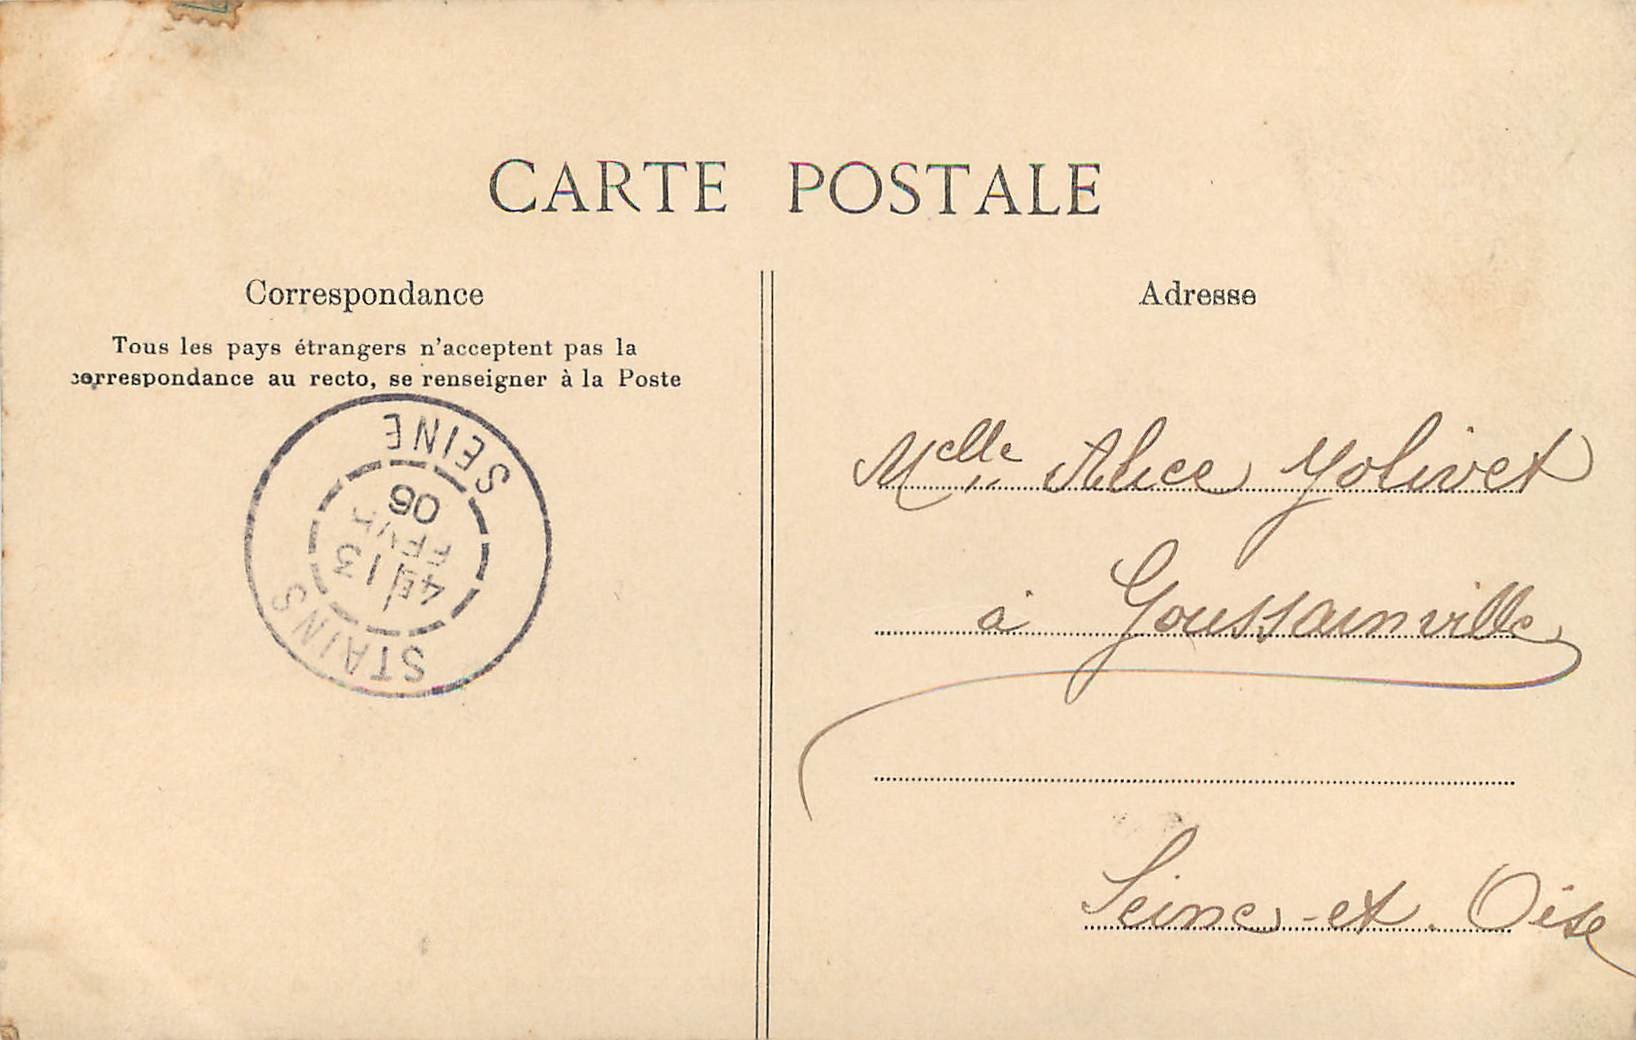 CARTE POSTALE
Correspondance
Tous les pays étrangers n'acceptent pas la
correspondance au recto, se renseigner à la Poste
STAINS
4E 13
FEVR
06
SEINE
Adresse
Melle Alice Jolivet
à Goussainville
Seine-et-Oise